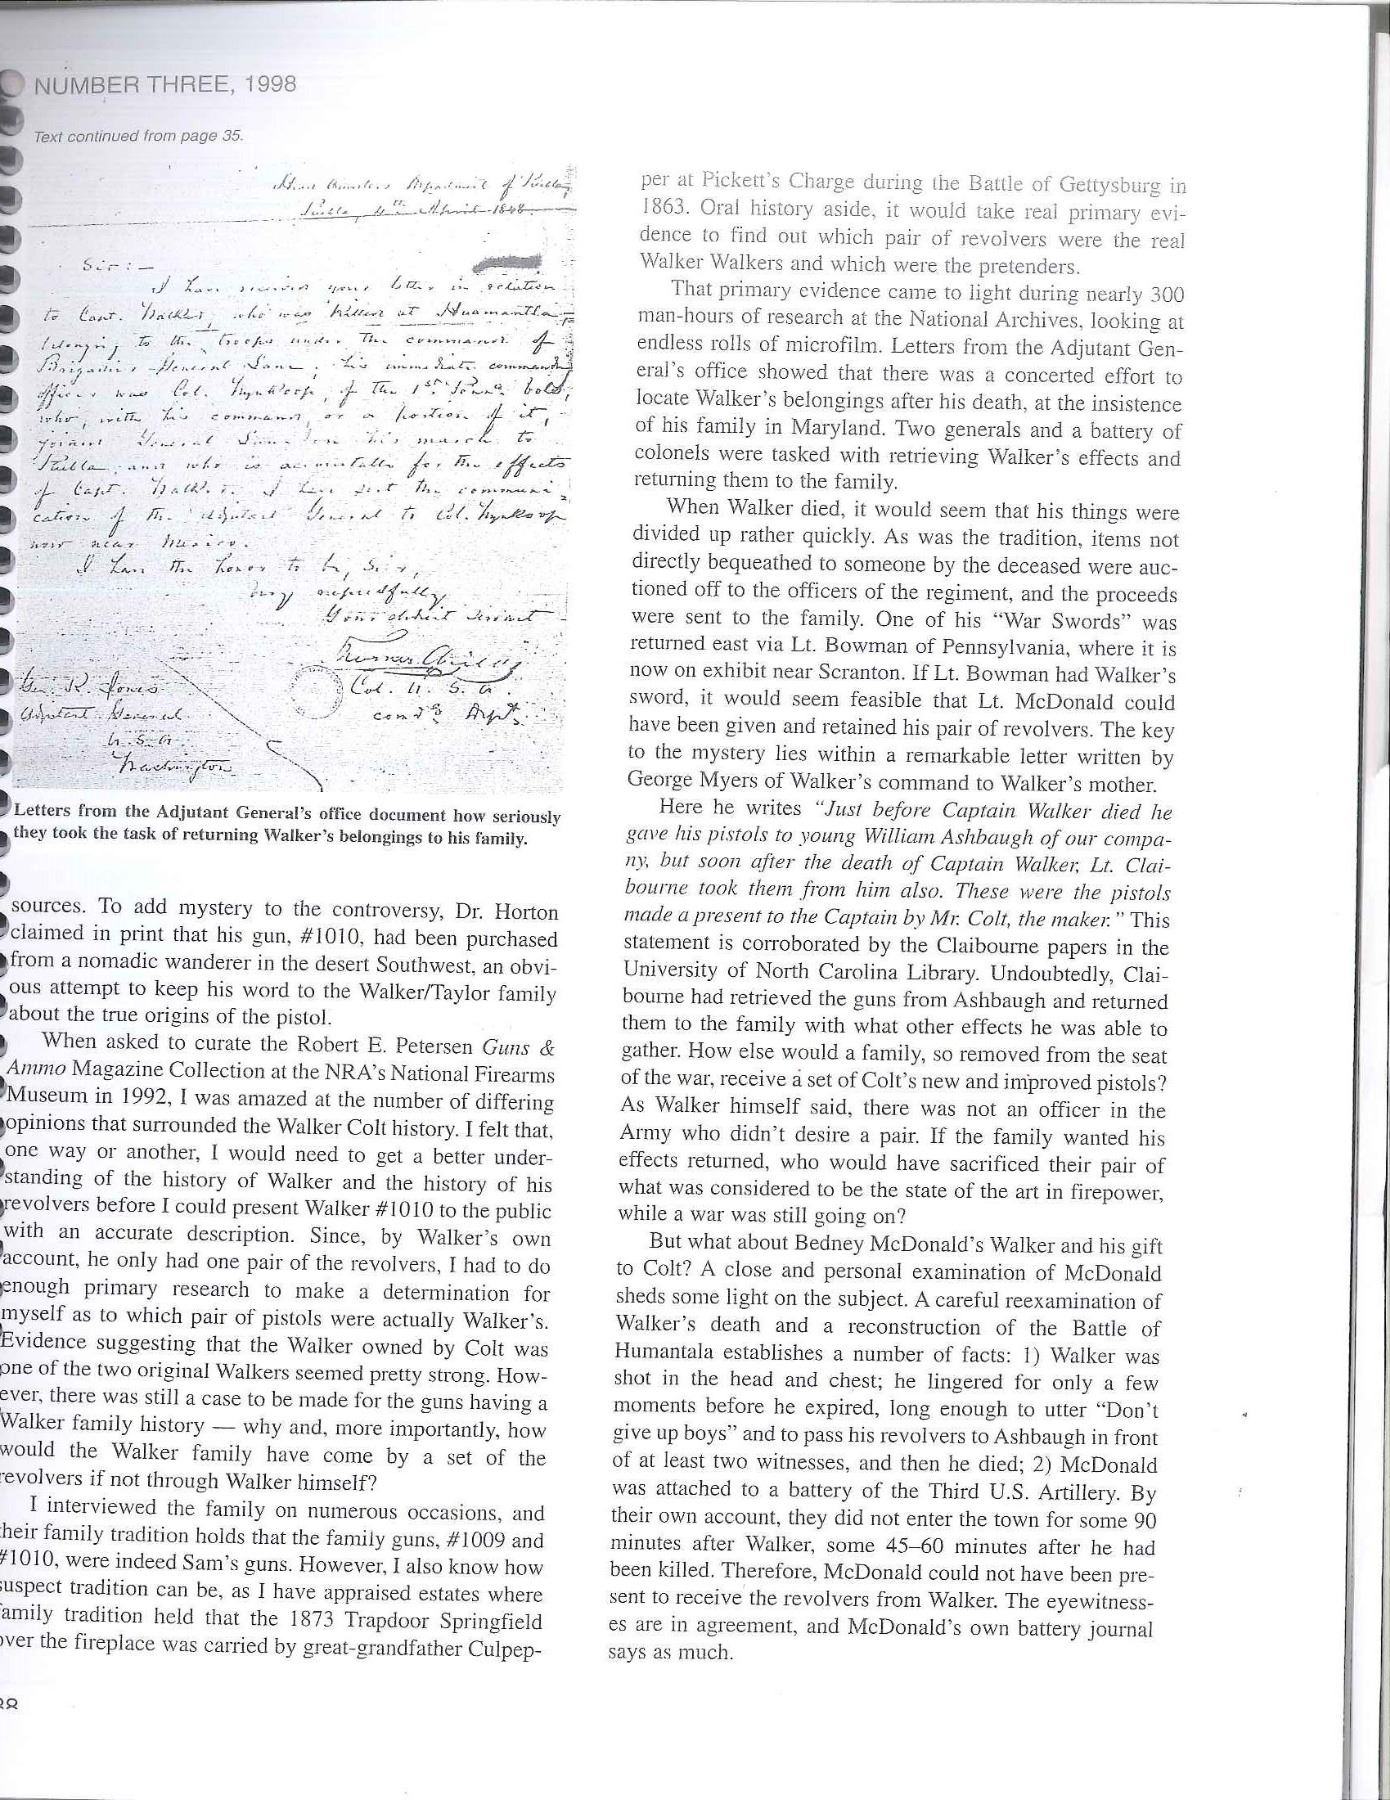 NUMBER THREE, 1998
Text continued from page 35.
Puebla, 11th April 1848
Sir:-
I have received your letter in relation
to Capt. Walker, who was killed at Huamantla,
belonging to the troops under the command of
Brigadier General Lane; his immediate commanding
officer was Col. Wynkoop, of the 1st Penna. Vols,
who, with his command, or a portion of it,
joined General Lane on his march to
Puebla, and who is accountable for the effects
of Capt. Walker. I have sent the communi-
cation of the Adjutant General to Col. Wynkoop
now near Mexico.
I have the honor to be, Sir,
Very respectfully
Your obedient servant
Thomas Childs
Col. U. S. A.
Genl. R. Jones
Adjutant General
U. S. A.
Washington
Letters from the Adjutant General's office document how seriously
they took the task of returning Walker's belongings to his family.
sources. To add mystery to the controversy, Dr. Horton
claimed in print that his gun, #1010, had been purchased
from a nomadic wanderer in the desert Southwest, an obvi-
ous attempt to keep his word to the Walker/Taylor family
about the true origins of the pistol.
When asked to curate the Robert E. Petersen Guns &
Ammo Magazine Collection at the NRA's National Firearms
Museum in 1992, I was amazed at the number of differing
opinions that surrounded the Walker Colt history. I felt that,
one way or another, I would need to get a better under-
standing of the history of Walker and the history of his
revolvers before I could present Walker #1010 to the public
with an accurate description. Since, by Walker's own
account, he only had one pair of the revolvers, I had to do
enough primary research to make a determination for
myself as to which pair of pistols were actually Walker's.
Evidence suggesting that the Walker owned by Colt was
one of the two original Walkers seemed pretty strong. How-
ever, there was still a case to be made for the guns having a
Walker family history — why and, more importantly, how
would the Walker family have come by a set of the
revolvers if not through Walker himself?
I interviewed the family on numerous occasions, and
their family tradition holds that the family guns, #1009 and
#1010, were indeed Sam's guns. However, I also know how
suspect tradition can be, as I have appraised estates where
family tradition held that the 1873 Trapdoor Springfield
over the fireplace was carried by great-grandfather Culpep-
38
per at Pickett's Charge during the Battle of Gettysburg in
1863. Oral history aside, it would take real primary evi-
dence to find out which pair of revolvers were the real
Walker Walkers and which were the pretenders.
That primary evidence came to light during nearly 300
man-hours of research at the National Archives, looking at
endless rolls of microfilm. Letters from the Adjutant Gen-
eral's office showed that there was a concerted effort to
locate Walker's belongings after his death, at the insistence
of his family in Maryland. Two generals and a battery of
colonels were tasked with retrieving Walker's effects and
returning them to the family.
When Walker died, it would seem that his things were
divided up rather quickly. As was the tradition, items not
directly bequeathed to someone by the deceased were auc-
tioned off to the officers of the regiment, and the proceeds
were sent to the family. One of his “War Swords” was
returned east via Lt. Bowman of Pennsylvania, where it is
now on exhibit near Scranton. If Lt. Bowman had Walker's
sword, it would seem feasible that Lt. McDonald could
have been given and retained his pair of revolvers. The key
to the mystery lies within a remarkable letter written by
George Myers of Walker's command to Walker's mother.
Here he writes “Just before Captain Walker died he
gave his pistols to young William Ashbaugh of our compa-
ny, but soon after the death of Captain Walker, Lt. Clai-
bourne took them from him also. These were the pistols
made a present to the Captain by Mr. Colt, the maker.” This
statement is corroborated by the Claibourne papers in the
University of North Carolina Library. Undoubtedly, Clai-
bourne had retrieved the guns from Ashbaugh and returned
them to the family with what other effects he was able to
gather. How else would a family, so removed from the seat
of the war, receive a set of Colt's new and improved pistols?
As Walker himself said, there was not an officer in the
Army who didn't desire a pair. If the family wanted his
effects returned, who would have sacrificed their pair of
what was considered to be the state of the art in firepower,
while a war was still going on?
But what about Bedney McDonald's Walker and his gift
to Colt? A close and personal examination of McDonald
sheds some light on the subject. A careful reexamination of
Walker's death and a reconstruction of the Battle of
Humantala establishes a number of facts: 1) Walker was
shot in the head and chest; he lingered for only a few
moments before he expired, long enough to utter “Don't
give up boys” and to pass his revolvers to Ashbaugh in front
of at least two witnesses, and then he died; 2) McDonald
was attached to a battery of the Third U.S. Artillery. By
their own account, they did not enter the town for some 90
minutes after Walker, some 45–60 minutes after he had
been killed. Therefore, McDonald could not have been pre-
sent to receive the revolvers from Walker. The eyewitness-
es are in agreement, and McDonald's own battery journal
says as much.